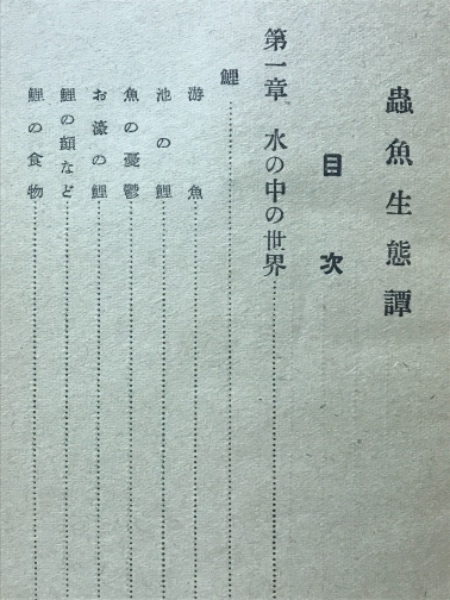 蟲魚生態譚
目次
第一章 水の中の世界
鯉
游魚
池の鯉
魚の憂鬱
お濠の鯉
鯉の顔など
鯉の食物